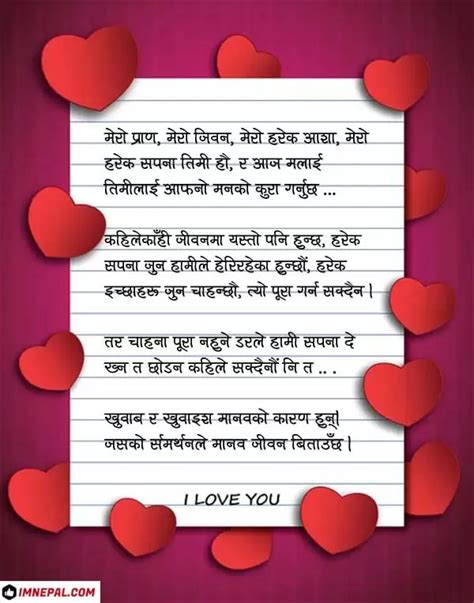 मेरो प्राण, मेरो जिवन, मेरो हरेक आशा, मेरो
हरेक सपना तिमी हौ, र आज मलाई
तिमीलाई आफनो मनको कुरा गर्नुछ ...
कहिलेकाँही जीवनमा यस्तो पनि हुन्छ, हरेक
सपना जुन हामीले हेरिरहेका हुन्छौं, हरेक
इच्छाहरु जुन चाहन्छौ, त्यो पूरा गर्न सक्दैन |
तर चाहना पूरा नहुने डरले हामी सपना दे
ख्न त छोडन कहिले सक्दैनौं नि त .. .
खुवाब र खुवाइश मानवको कारण हुन्|
जसको र्समर्थनले मानव जीवन बिताउँछ |
I LOVE YOU
IMNEPAL.COM